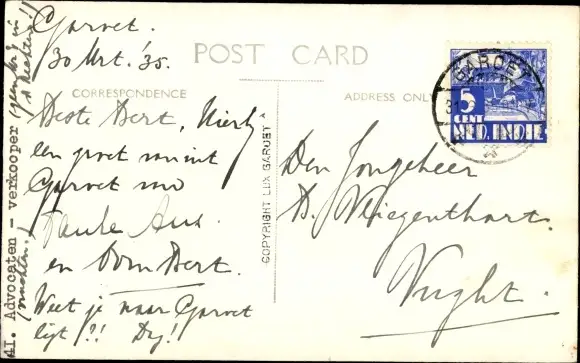 Garoet.
30 Mrt. '35.
Beste Bert, Hierbij
een groet vanuit
Garoet van
Tante Aus.
en Oom Bert.
Weet je waar Garoet
ligt?! Dag!!
41. Advocaten – verkooper (geen in
vruchten!)
POST CARD
CORRESPONDENCE
ADDRESS ONLY
COPYRIGHT LUX GAROET
GAROET
31
5
CENT
NED. INDIE
Den Jongeheer
B. Vliegenthart.
Vught.